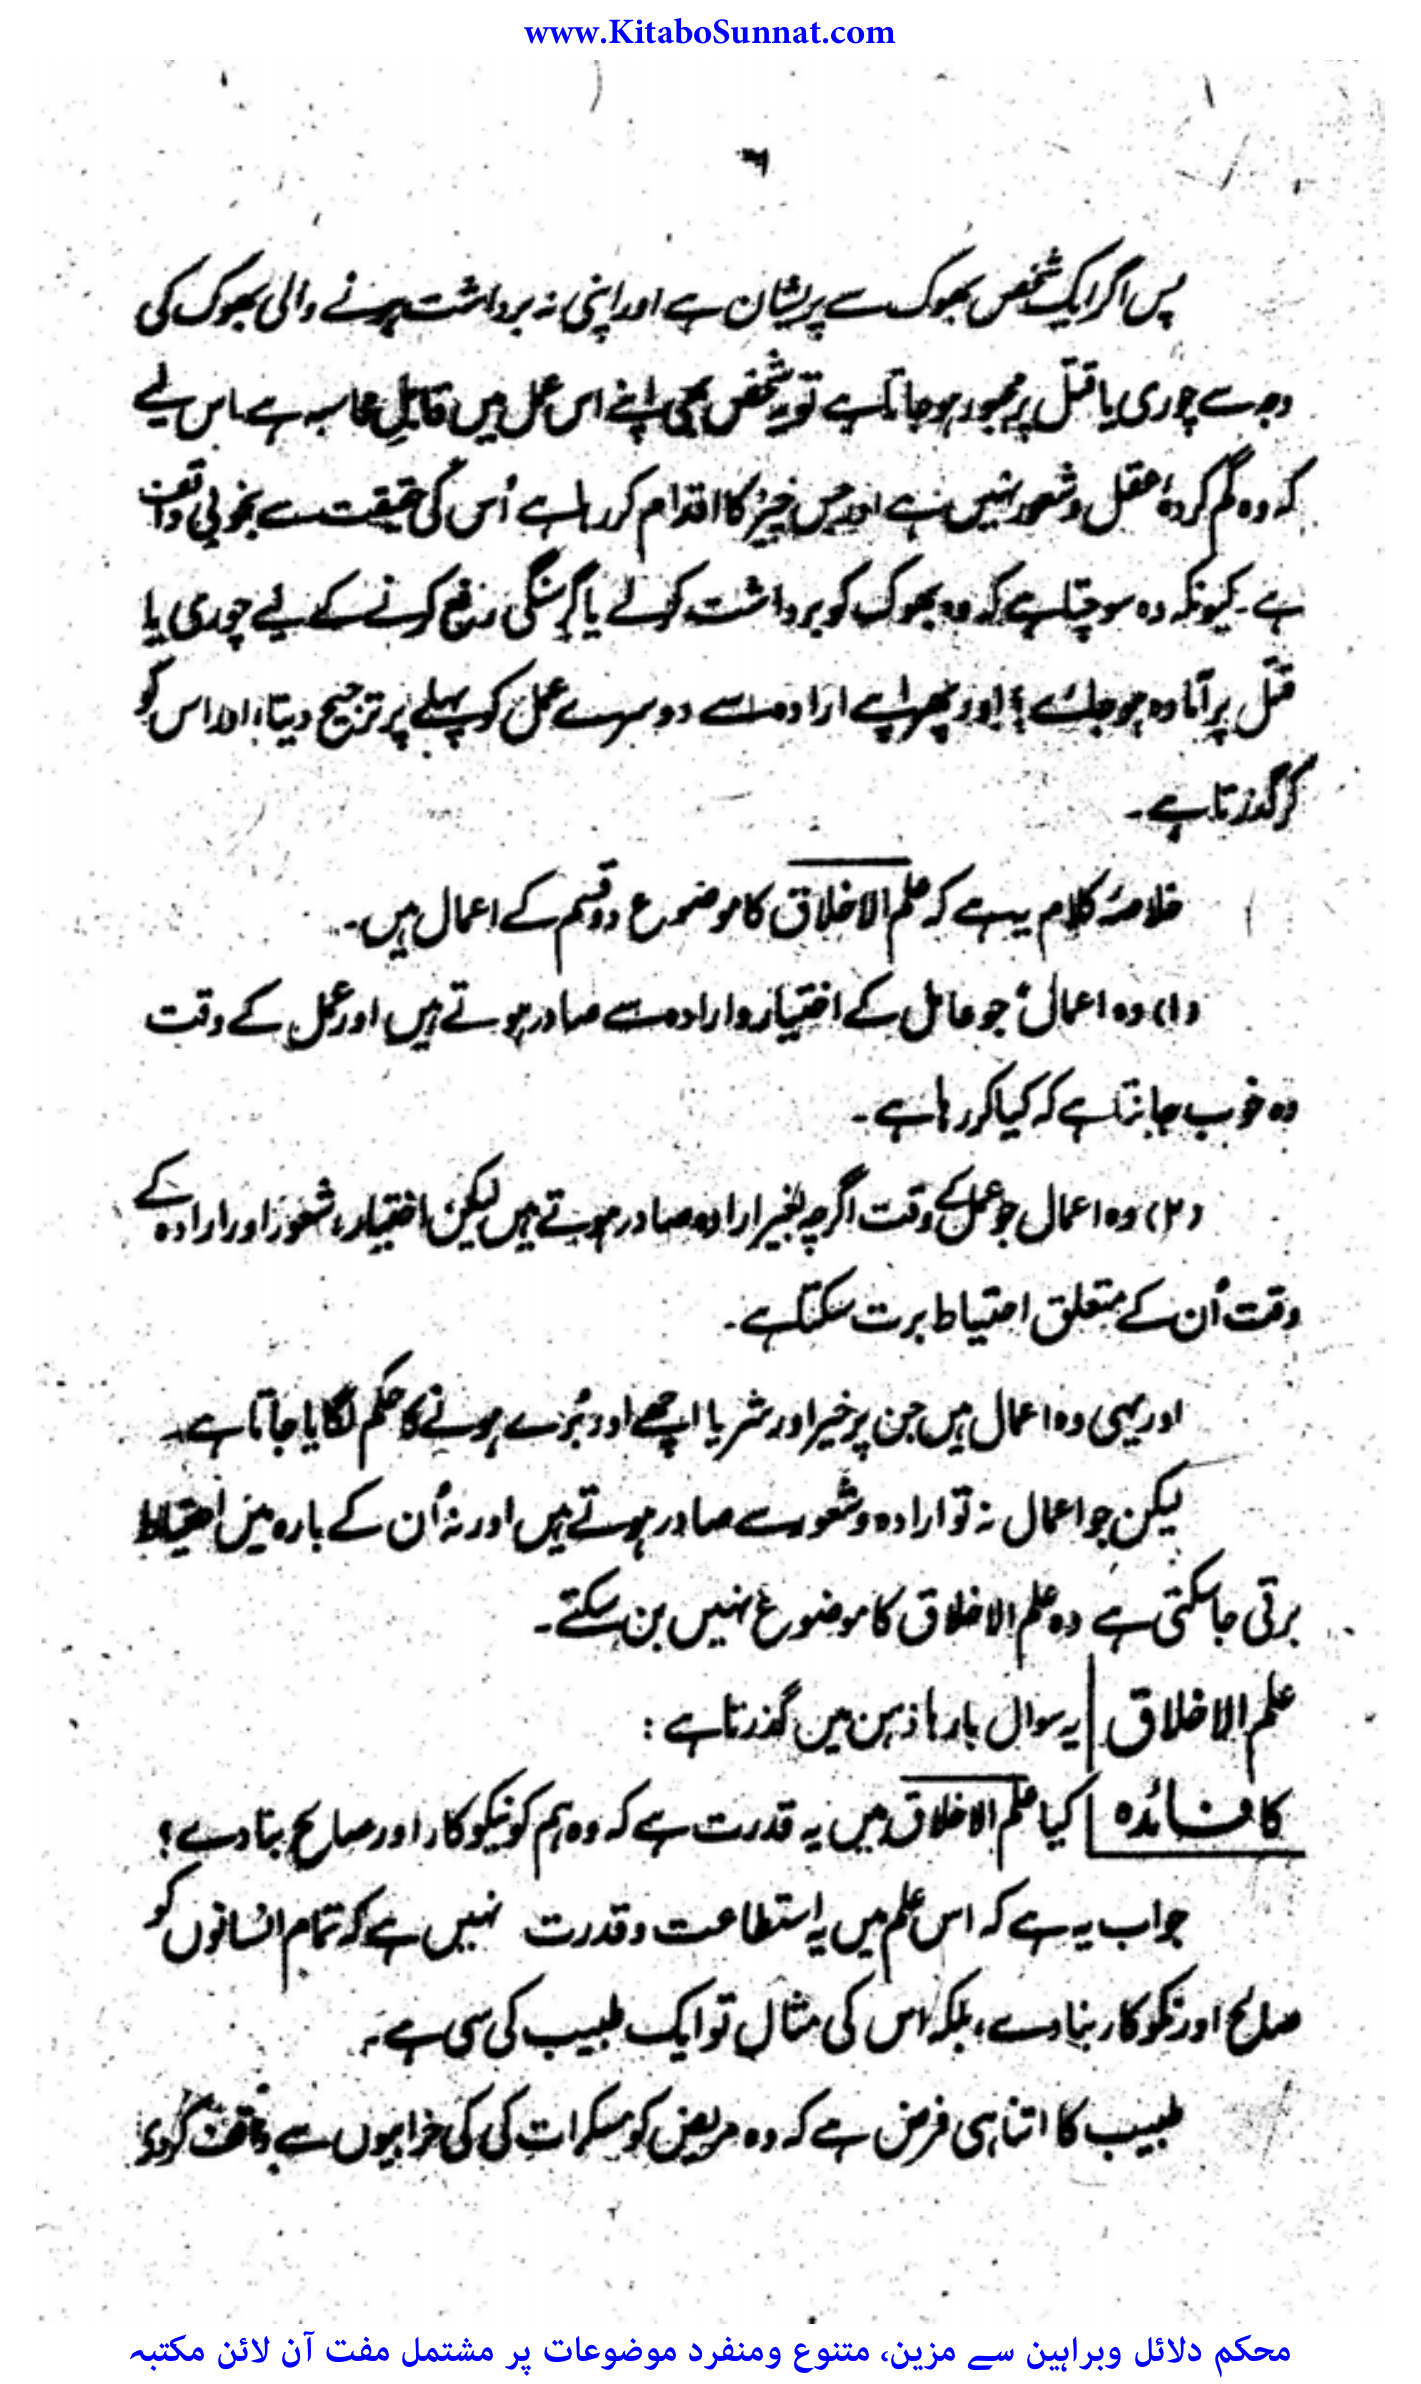 www.KitaboSunnat.com
۶
پس اگر ایک شخص بھوک سے پریشان ہے اور اپنی نہ برداشت ہونے والی بھوک کی
وجہ سے چوری یا قتل پر مجبور ہو جاتا ہے تو یہ شخص بھی اپنے اس عمل میں قابلِ محاسبہ ہے۔ اس لیے
کہ وہ گم کردہ عقل و شعور نہیں ہے اور جس چیز کا اقدام کر رہا ہے اُس کی حقیقت سے بخوبی واقف
ہے۔ کیونکہ وہ سوچتا ہے کہ وہ بھوک کو برداشت کرلے یا گرسنگی رفع کرنے کے لیے چوری یا
قتل پر آمادہ ہو جائے؟ اور پھر اپنے ارادہ سے دوسرے عمل کو پہلے پر ترجیح دیتا، اور اس کو
کر گذرتا ہے۔
خلاصۂ کلام یہ ہے کہ علم الاخلاق کا موضوع دو قسم کے اعمال ہیں۔
(۱) وہ اعمال جو عامل کے اختیار و ارادہ سے صادر ہوتے ہیں اور عمل کے وقت
وہ خوب جانتا ہے کہ کیا کر رہا ہے۔
(۲) وہ اعمال جو عمل کے وقت اگرچہ بغیر ارادہ صادر ہوتے ہیں لیکن اختیار، شعور اور ارادہ کے
وقت اُن کے متعلق احتیاط برت سکتا ہے۔
اور یہی وہ اعمال ہیں جن پر خیر اور شر یا اچھے اور بُرے ہونے کا حکم لگایا جاتا ہے۔
لیکن جو اعمال نہ تو ارادہ و شعور سے صادر ہوتے ہیں اور نہ اُن کے بارہ میں احتیاط
برتی جا سکتی ہے وہ علم الاخلاق کا موضوع نہیں بن سکتے۔
علم الاخلاق | یہ سوال بارہا ذہن میں گذرتا ہے :
کا فائدہ | کیا علم الاخلاق میں یہ قدرت ہے کہ وہ ہم کو نیکو کار اور صالح بنا دے؟
جواب یہ ہے کہ اس علم میں یہ استطاعت و قدرت نہیں ہے کہ تمام انسانوں کو
صالح اور نکو کار بنا دے، بلکہ اس کی مثال تو ایک طبیب کی سی ہے۔
طبیب کا اتنا ہی فرض ہے کہ وہ مریض کو مسکرات کی کی خرابیوں سے واقف کر دے
محکم دلائل وبراہین سے مزین، متنوع ومنفرد موضوعات پر مشتمل مفت آن لائن مکتبہ